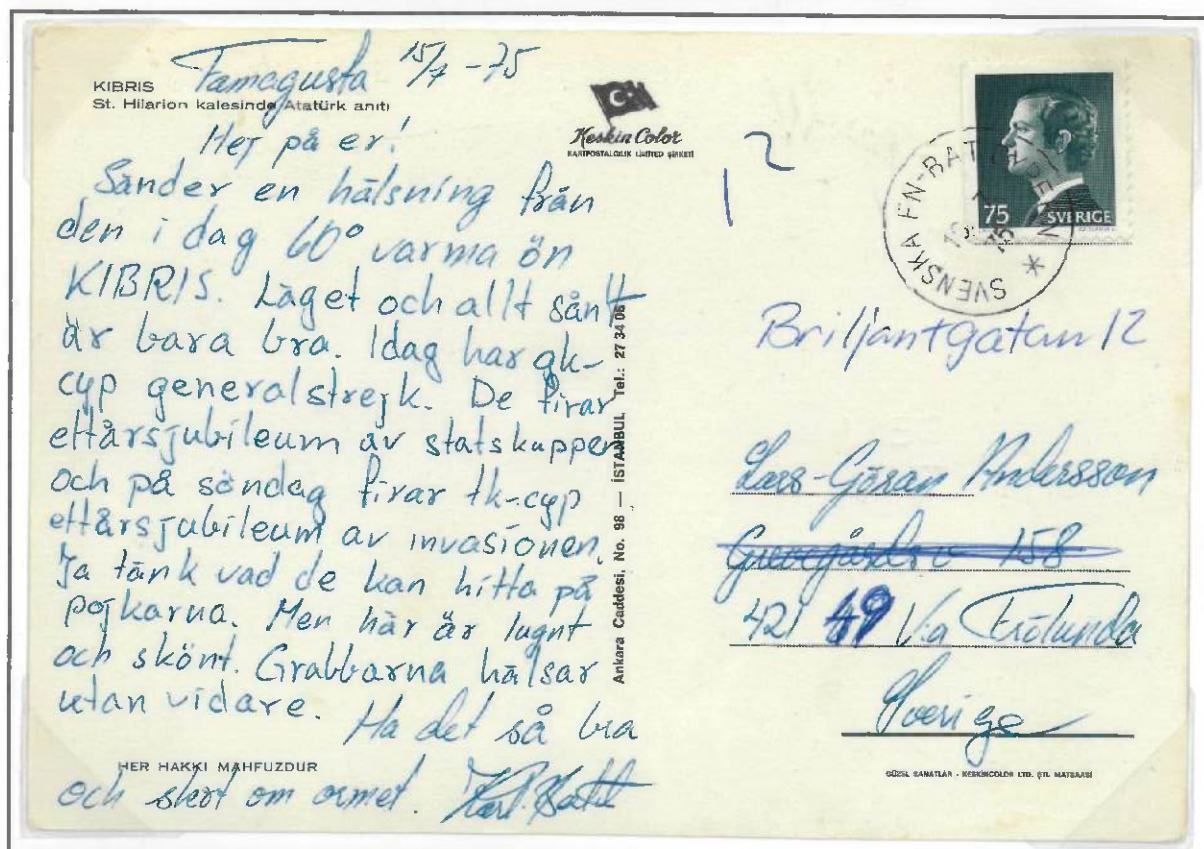 Famagusta 15/7 -75
KIBRIS
St. Hilarion kalesinde Atatürk anıtı
Hej på er!
Sänder en hälsning från
den i dag 60° varma ön
KIBRIS. Läget och allt sånt
är bara bra. Idag har gk-
cyp generalstrejk. De firar
ettårsjubileum av statskuppen
och på söndag firar tk-cyp
ettårsjubileum av invasionen.
Ja tänk vad de kan hitta på
pojkarna. Men här är lugnt
och skönt. Grabbarna hälsar
utan vidare. Ha det så bra
HER HAKKI MAHFUZDUR
och skit om
Keskin Color
KARTPOSTALCILIK LİMİTED ŞİRKETİ
Ankara Caddesi, No. 98 — İSTANBUL Tel.: 27 34 06
12
75 SVERIGE
SVENSKA FN-BATALJONEN
75
Briljantgatan 12
Lars-Göran Andersson
158
421 49 V:a Frölunda
Sverige
GÜZEL SANATLAR - KESKİNCOLOR LTD. ŞTİ. MATBAASI